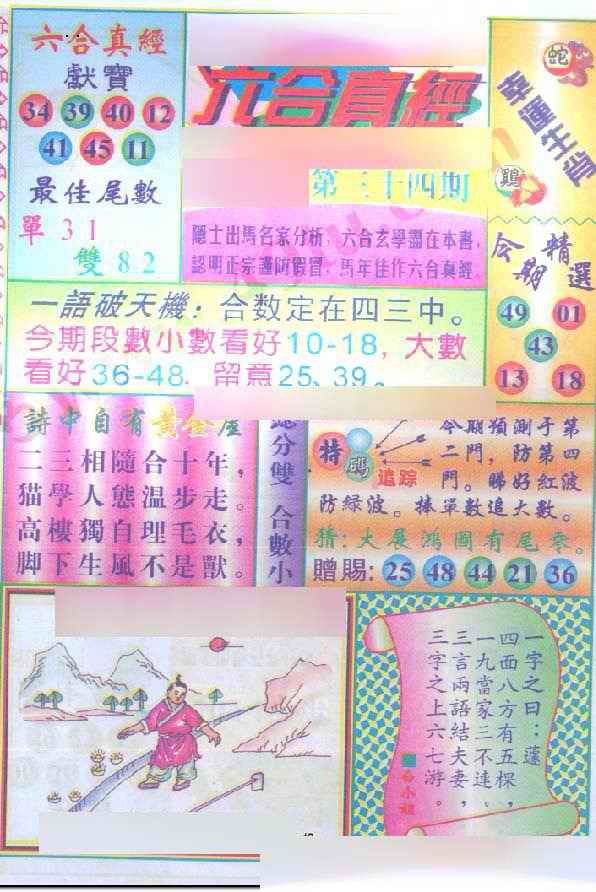 六合真經
獻寶
34 39 40 12
41 45 11
最佳尾數
單 31
雙 82
六合真經
第三十四期
隱士出馬名家分析，六合玄學盡在本書，
認明正宗謹防假冒，馬年佳作六合真經。
蛇
幸運生肖
鷄
今期精選
49 01
43
13 18
一語破天機：合数定在四三中。
今期段數小數看好10-18，大數
看好36-48，留意25、39。
詩中自有黃金屋
二三相隨合十年，
猫學人態温步走。
高樓獨自理毛衣，
脚下生風不是獸。
分雙 合數小
特碼
追踪
今期預測于第
二門，防第四
門。睇好紅波
防緑波。捧單數追大數。
猜：大展鴻圖有尾零。
贈賜：25 48 44 21 36
一字之曰：蓬
四面八方有五棵，
一九當家三不連。
三言兩語結夫妻，
三字之上六七游。